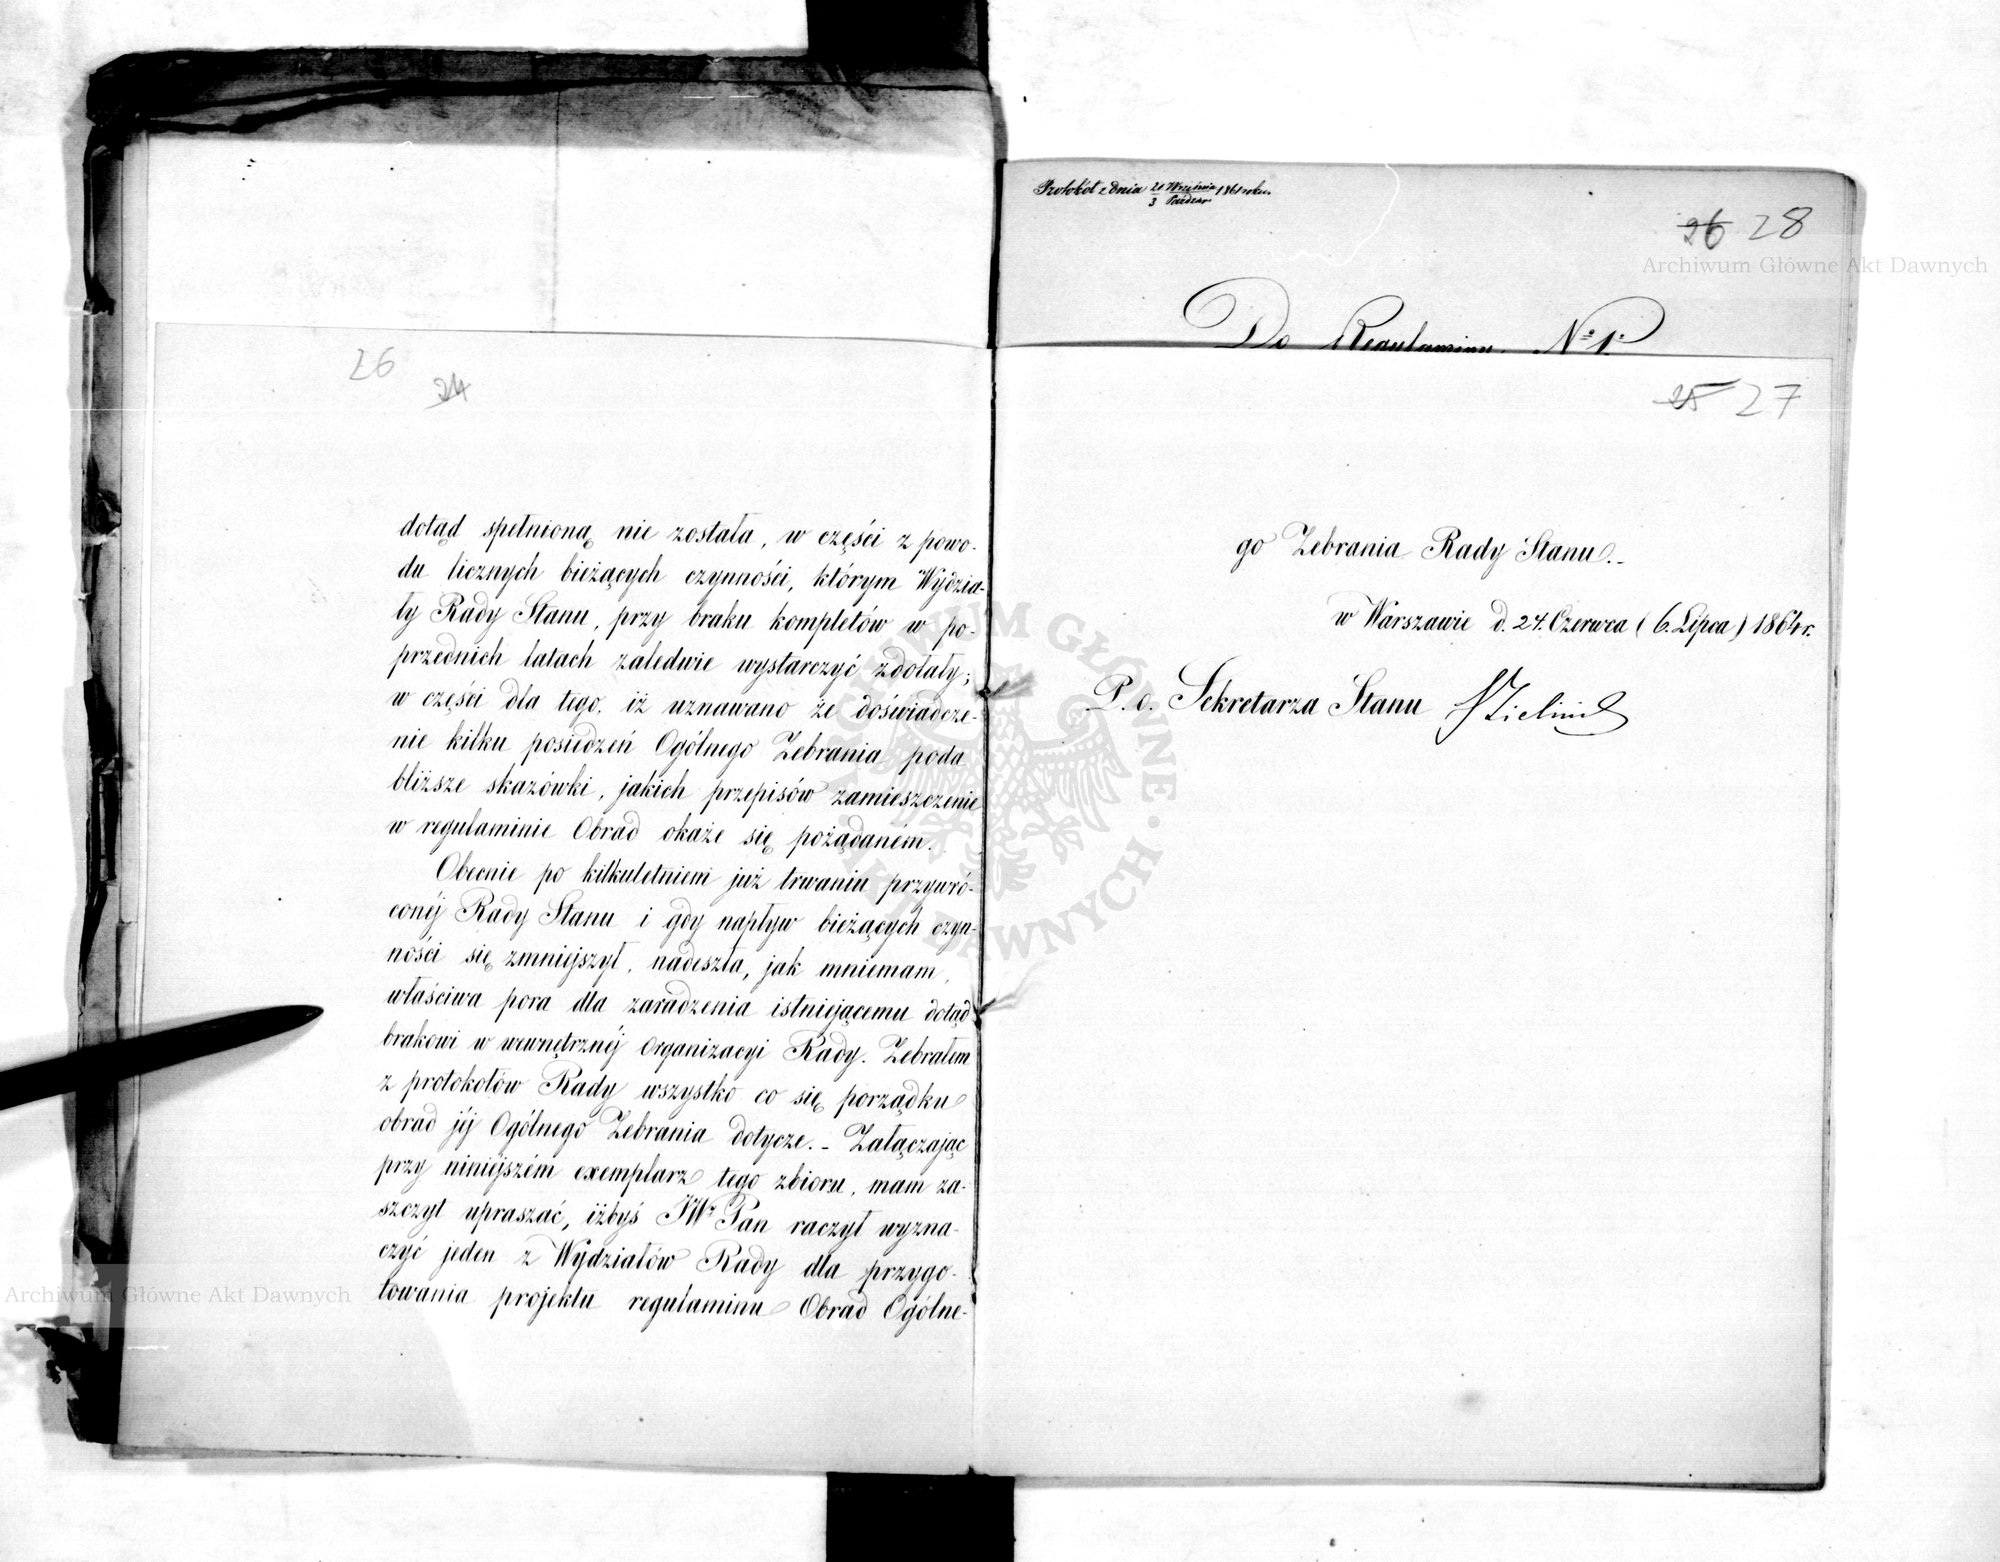 26
24
dotąd spełnioną nie została, w części z powo-
du licznych bieżących czynności, którym Wydzia-
ły Rady Stanu, przy braku kompletów w po-
przednich latach zaledwie wystarczyć zdołały;
w części dla tego, iż uznawano że doświadcze-
nie kilku posiedzeń Ogólnego Zebrania poda
bliższe skazówki, jakich przepisów zamieszczenie
w regulaminie Obrad okaże się pożądaném.
Obecnie po kilkuletniem już trwaniu przywró-
conéj Rady Stanu i gdy napływ bieżących czyn-
ności się zmniejszył, nadeszła, jak mniemam,
właściwa pora dla zaradzenia istniejącemu dotąd
brakowi w wewnętrznéj Organizacyi Rady. Zebrałem
z protokołów Rady wszystko co się porządku
obrad jéj Ogólnego Zebrania dotycze.- Załączając
przy niniejszém exemplarz tego zbioru, mam za-
szczyt upraszać, iżbyś JWy Pan raczył wyzna-
czyć jeden z Wydziałów Rady dla przygo-
towania projektu regulaminu Obrad Ogólne-
Protokół z dnia 21 Września / 3 Paździer 1861 roku.
26 28
Do Regulaminu Nº 1.
25 27
go Zebrania Rady Stanu.-
w Warszawie d. 24. Czerwca (6. Lipca) 1864 r.
P. o. Sekretarza Stanu
Archiwum Główne Akt Dawnych
Archiwum Główne Akt Dawnych
ARCHIWUM GŁÓWNE AKT DAWNYCH